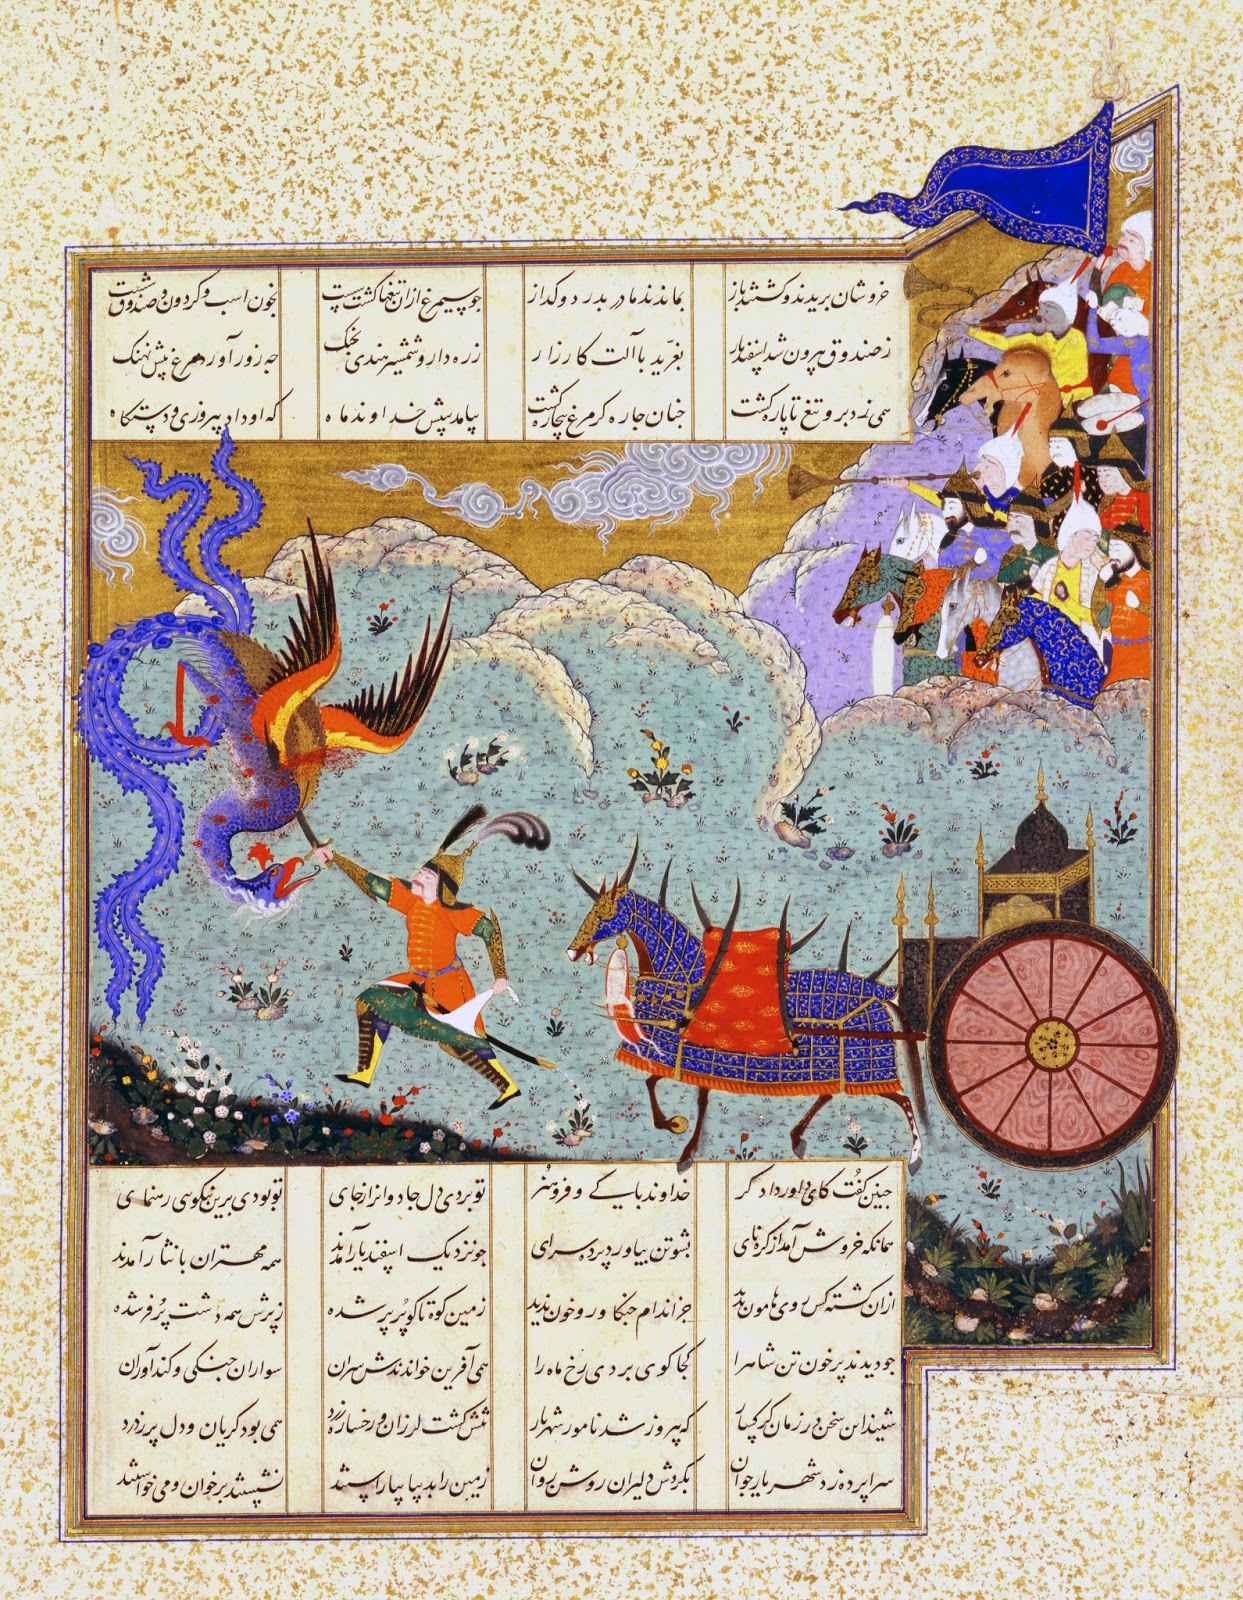 خروشان بریدند و گشتند باز بماندند مادر بدرد و گداز چو سیمرغ ازان تیغها گشت سست بخون اسب و گردون و صندوق شست
ز صندوق بیرون شد اسفندیار بغرید با آلت کارزار زره دار و شمشیر هندی بچنگ چه زور آورد مرغ پیش نهنگ
همی زد برو تیغ تا پاره گشت چنان چاره گر مرغ بیچاره گشت بیامد بپیش خداوند ماه که او داد پیروزی و دستگاه
چنین گفت کای داور دادگر خداوند پاکی و فر و هنر تو بردی دل جادوانرا ز جای تو بودی برین نیکوی رهنمای
همانگه خروش آمد از کرنای بشوتن بیاورد پرده سرای چو نزدیک اسفندیار آمدند همه مهتران با نثار آمدند
ازان کشته کس روی هامون ندید جز اندام جنگاور و خون ندید زمین کوه تا کوه پر پر شده ز پرش همه دشت پر فر شده
چو دیدند پر خون تن شاه را کجا گوی بردی رخ ماه را همی آفرین خواندندش سران سواران جنگی و کندآوران
شنید این سخن در زمان گرگسار که پیروز شد نامور شهریار تنش گشت لرزان و رخساره زرد همی بود گریان و دل پر ز درد
سراپرده زد شهریار جوان بگردش دلیران روشن روان زمین را بدیبا بیاراستند نشستند بر خوان و می خواستند